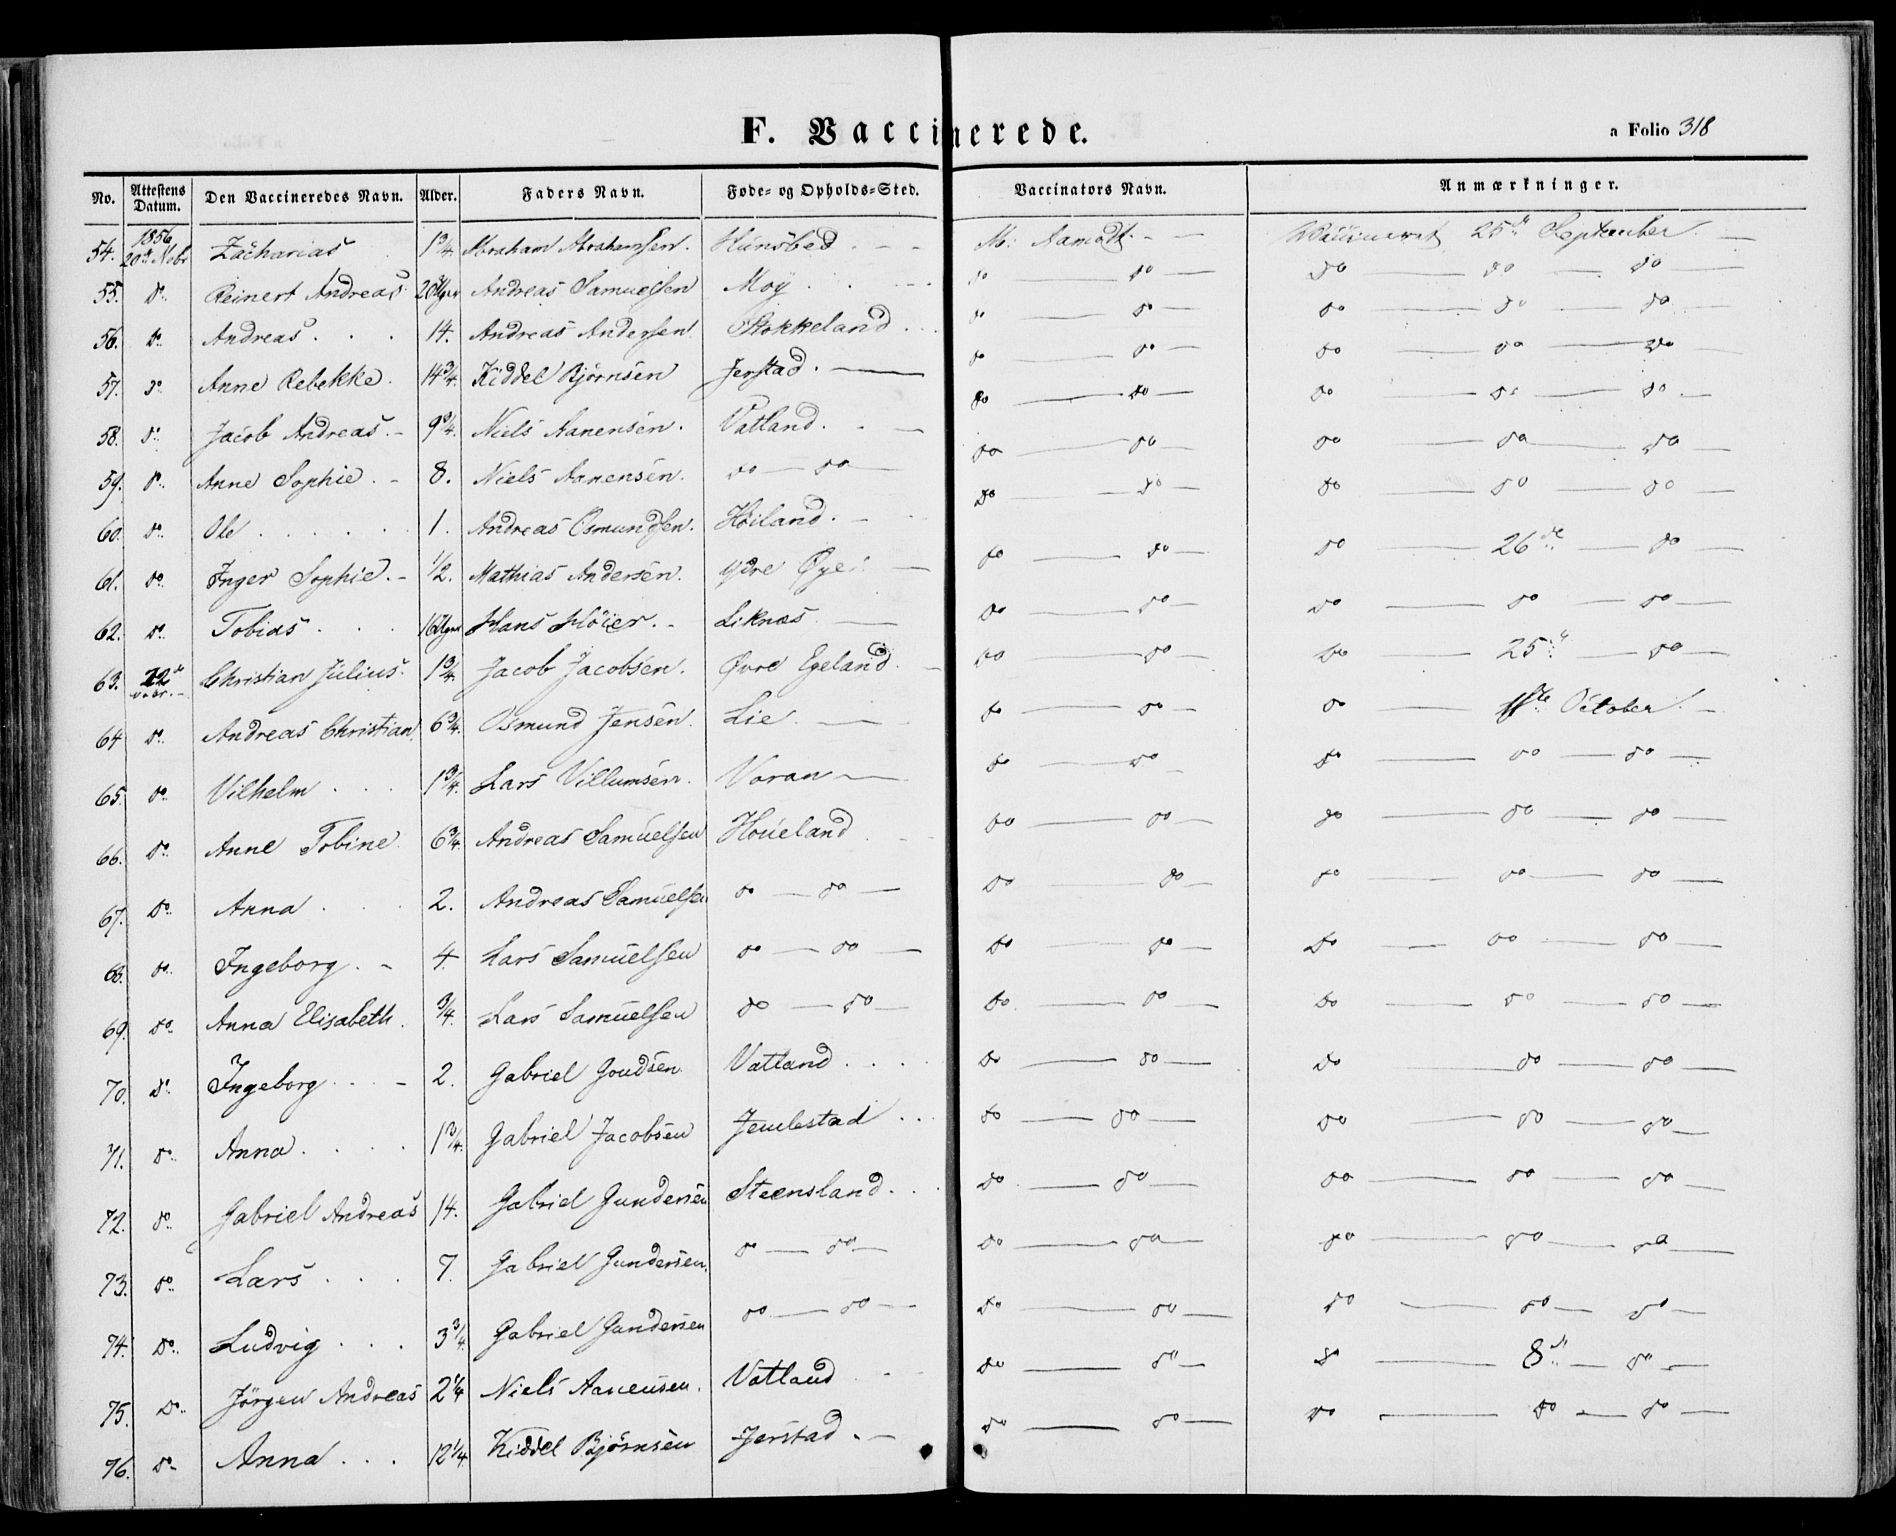 F. Vaccinerede.
a Folio 318
No. Attestens Datum. Den Vaccineredes Navn. Alder. Faders Navn. Føde- og Opholds-Sted. Vaccinators Navn. Anmærkninger.
54. 1856 20de Nobr Zacharias 1 3/4 Abraham Abrahamsen. Hunsbed - - M: Aamodt. - - Vaccineret 25de September -
55. do Reinert Andreas 20 Uger Andreas Samuelsen Moy do do do do do
56. do Andreas 14. Andreas Andersen Stokkeland do do do do do
57. do Anne Rebekke. 14 3/4. Kiddel Bjørnsen Jerstad. do do do do do
58. do Jacob Andreas. - 9 3/4. Niels Aanensen. Vatland. do do do do do
59. do Anne Sophie. - 8. Niels Aanensen. do do do do do do do
60. do Ole 1. Andreas Osmundsen. Høiland. - do do do do do
61. do Inger Sophie. - 1/2. Mathias Andersen. Ydre Øye. do do do 26de do
62. do Tobias 16 Uger Hans Høier. - Liknæs do do do do do
63. 22de Nobr. - Christian Julius. 1 3/4. Jacob Jacobsen. Øvre Egeland. do do do 25de do
64 do Andreas Christian 6 3/4. Osmund Jensen. Lie. do do do 1ste October. -
65. do Vilhelm 1 3/4. Lars Villumsen. Voran do do do do do
66. do Anne Tobine 6 3/4. Andreas Samuelsen Houeland do do do do do
67. do Anna 2. Andreas Samuelsen do do do do do do do
68. do Ingeborg. - 4. Lars Samuelsen do do do do do do do
69. do Anna Elisabeth. 3/4. Lars Samuelsen do do do do do do do
70. do Ingeborg 2. Gabriel Goudsen Vatland do do do do do
71. do Anna 1 3/4. Gabriel Jacobsen Jemlestad do do do do do
72. do Gabriel Andreas 14. Gabriel Gundersen Steensland. do do do do do
73. do Lars 7. Gabriel Gundersen. do do do do do do do
74. do Ludvig 3 3/4. Gabriel Gundersen do do do do do do do
75. do Jörgen Andreas 2 1/4 Niels Aanensen. Vatland do do do 8de do
76. do Anna 12 1/4 Kiddel Bjørnsen Jerstad. - do do do do do